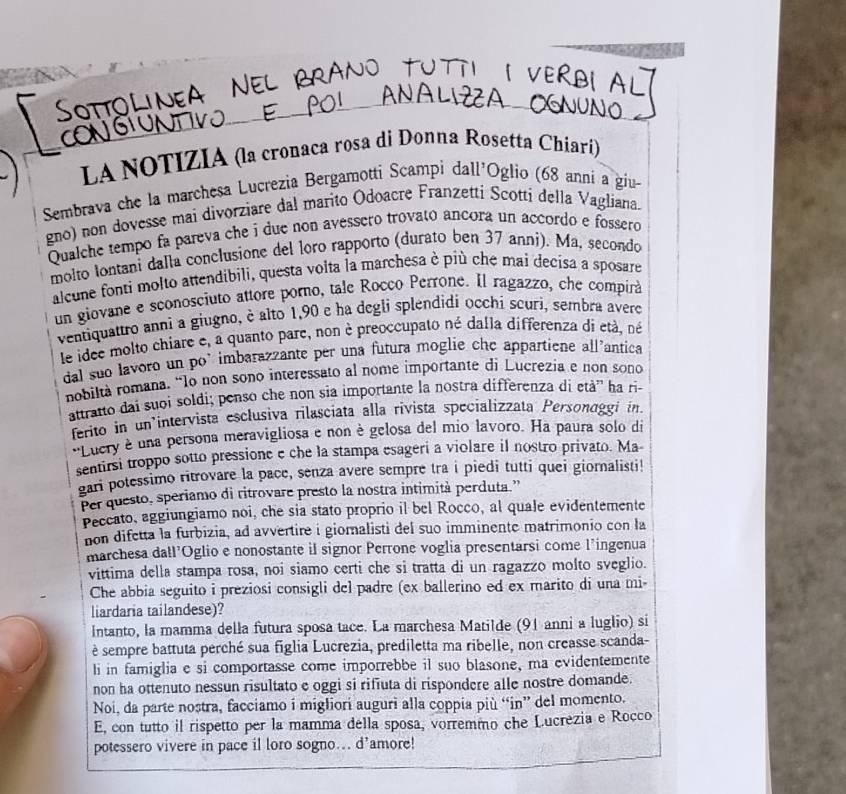 SOTTOLINEA NEL BRANO TUTTI I VERBI AL
CONGIUNTIVO E POI ANALIZZA OGNUNO
LA NOTIZIA (la cronaca rosa di Donna Rosetta Chiari)
Sembrava che la marchesa Lucrezia Bergamotti Scampi dall'Oglio (68 anni a giu-
gno) non dovesse mai divorziare dal marito Odoacre Franzetti Scotti della Vagliana.
Qualche tempo fa pareva che i due non avessero trovato ancora un accordo e fossero
molto lontani dalla conclusione del loro rapporto (durato ben 37 anni). Ma, secondo
alcune fonti molto attendibili, questa volta la marchesa è più che mai decisa a sposare
un giovane e sconosciuto attore porno, tale Rocco Perrone. Il ragazzo, che compirà
ventiquattro anni a giugno, è alto 1,90 e ha degli splendidi occhi scuri, sembra avere
le idee molto chiare e, a quanto pare, non è preoccupato né dalla differenza di età, né
dal suo lavoro un po' imbarazzante per una futura moglie che appartiene all'antica
nobiltà romana. "Io non sono interessato al nome importante di Lucrezia e non sono
attratto dai suoi soldi; penso che non sia importante la nostra differenza di età" ha ri-
ferito in un'intervista esclusiva rilasciata alla rivista specializzata Personaggi in.
"Lucry è una persona meravigliosa e non è gelosa del mio lavoro. Ha paura solo di
sentirsi troppo sotto pressione e che la stampa esageri a violare il nostro privato. Ma-
gari potessimo ritrovare la pace, senza avere sempre tra i piedi tutti quei giornalisti!
Per questo, speriamo di ritrovare presto la nostra intimità perduta."
Peccato, aggiungiamo noi, che sia stato proprio il bel Rocco, al quale evidentemente
non difetta la furbizia, ad avvertire i giornalisti del suo imminente matrimonio con la
marchesa dall'Oglio e nonostante il signor Perrone voglia presentarsi come l'ingenua
vittima della stampa rosa, noi siamo certi che si tratta di un ragazzo molto sveglio.
Che abbia seguito i preziosi consigli del padre (ex ballerino ed ex marito di una mi-
liardaria tailandese)?
Intanto, la mamma della futura sposa tace. La marchesa Matilde (91 anni a luglio) si
è sempre battuta perché sua figlia Lucrezia, prediletta ma ribelle, non creasse scanda-
li in famiglia e si comportasse come imporrebbe il suo blasone, ma evidentemente
non ha ottenuto nessun risultato e oggi si rifiuta di rispondere alle nostre domande.
Noi, da parte nostra, facciamo i migliori auguri alla coppia più "in" del momento.
E, con tutto il rispetto per la mamma della sposa, vorremmo che Lucrezia e Rocco
potessero vivere in pace il loro sogno... d'amore!